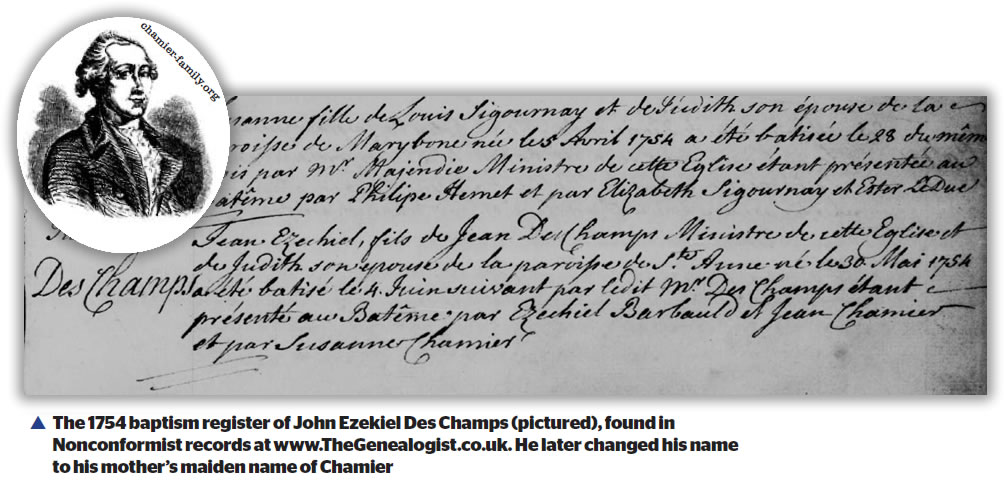 chamier-family.org
anne fille de Louis Sigournay et de Judith son épouse de la
roisse de Marybone née le 5 Avril 1754 a été batisée le 28 du mêm
is par Mr. Majendie Ministre de cette Eglise étant présentée au
atême par Philipe Hemet et par Elizabeth Sigournay et Ester LeDuc
Jean Ezechiel, fils de Jean DesChamps Ministre de cette Eglise et
de Judith son épouse de la paroisse de Ste. Anne né le 30 Mai 1754
DesChamps a été batisé le 4. Juin suivant par ledit Mr. DesChamps étant
présenté au Batême par Ezechiel Barbauld et Jean Chamier
et par Susanne Chamier
▲ The 1754 baptism register of John Ezekiel Des Champs (pictured), found in
Nonconformist records at www.TheGenealogist.co.uk. He later changed his name
to his mother's maiden name of Chamier